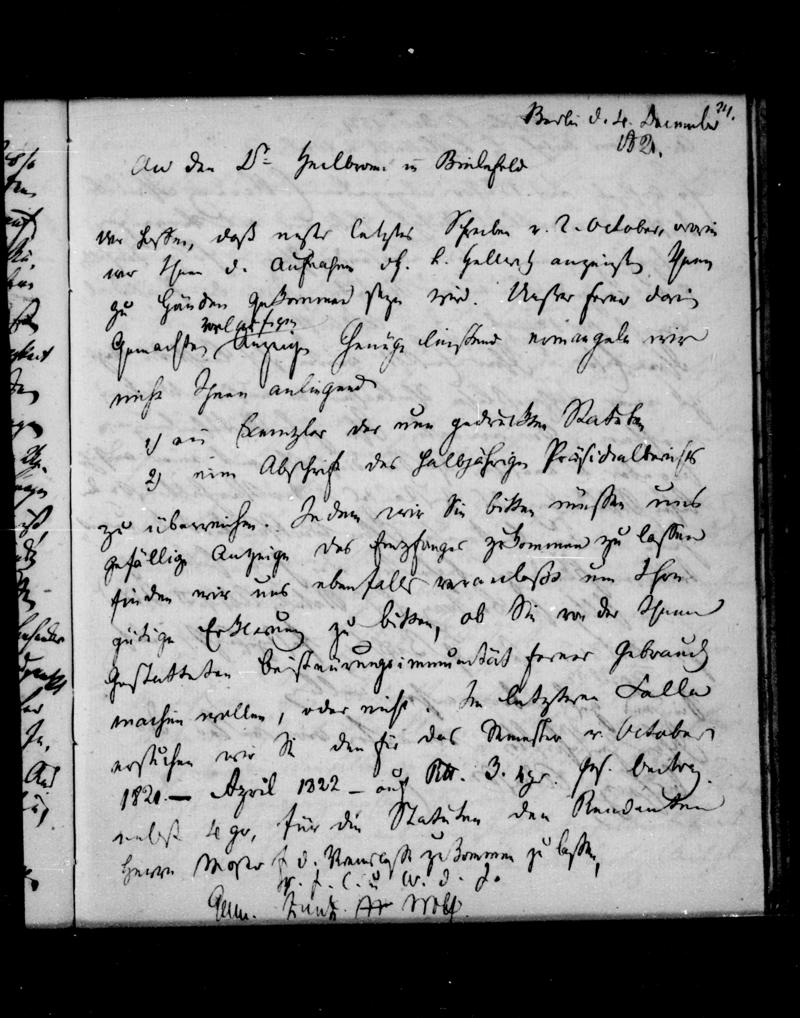 24.
Berlin d. 4. December
1821.
An den Dr. Heilbronn in Bielefeld
Wir hoffen, daß unser letztes Schreiben v. 2. October, worin
wir Ihnen d. Aufnahme d. H. anzeigten, Ihnen
zu Händen gekommen seyn wird. Unsrer ferner darin
vorläufigen
gemachten Anzeige Genüge leistend ermangeln wir
nicht Ihnen anliegend
1) ein Exemplar der nun gedruckten Statuten
2) eine Abschrift des halbjährigen Präsidialberichts
zu überreichen. Indem wir Sie bitten müssen uns
gefällige Anzeige des Empfanges zukommen zu lassen
finden wir uns ebenfalls veranlaßt um Ihre
gütige Erklärung zu bitten, ob Sie von der Ihnen
gestatteten Beisteurungsimmunität ferner Gebrauch
machen wollen, oder nicht. Im letzteren Falle
ersuchen wir Sie den für das Semester v. October
1821 — April 1822 — auf Rtl. 3. 4gr. Beitrag
nebst 4 gr, für die Statuten dem Rendanten
Herrn Moser f. d. Vereinskasse zukommen zu lassen,
D. V. f. C. u. W. d. J.
Zunz Wolf